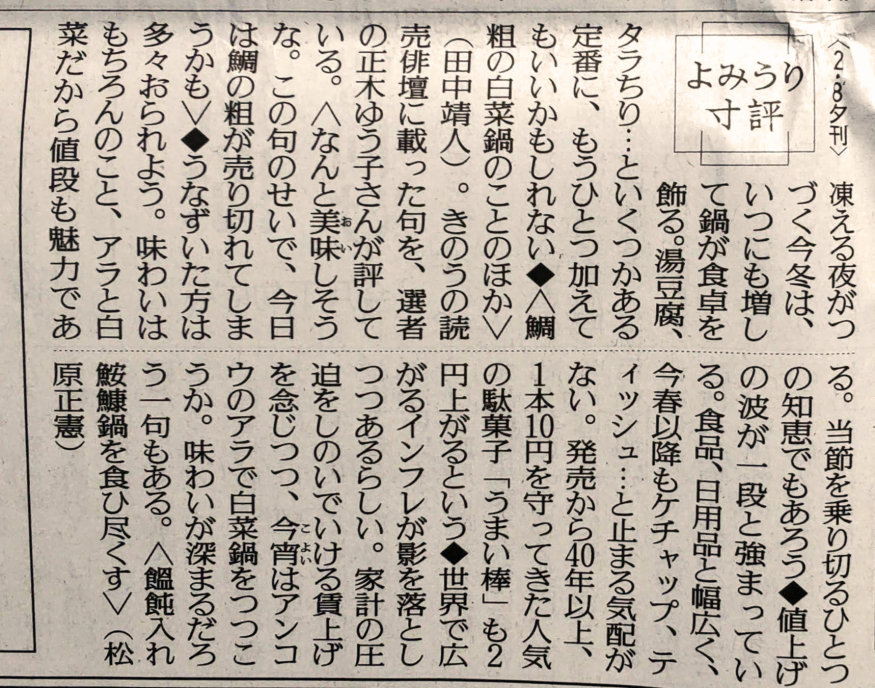 〈2・8夕刊〉
よみうり
寸評
凍える夜がつ
づく今冬は、
いつにも増し
て鍋が食卓を
飾る。湯豆腐、
タラちり…といくつかある
定番に、もうひとつ加えて
もいいかもしれない◆〈鯛
粗の白菜鍋のことのほか〉
（田中靖人）。きのうの読
売俳壇に載った句を、選者
の正木ゆう子さんが評して
いる。〈なんと美味しそう
おい
な。この句のせいで、今日
は鯛の粗が売り切れてしま
うかも〉◆うなずいた方は
多々おられよう。味わいは
もちろんのこと、アラと白
菜だから値段も魅力であ
る。当節を乗り切るひとつ
の知恵でもあろう◆値上げ
の波が一段と強まってい
る。食品、日用品と幅広く、
今春以降もケチャップ、テ
ィッシュ…と止まる気配が
ない。発売から40年以上、
1本10円を守ってきた人気
の駄菓子「うまい棒」も2
円上がるという◆世界で広
がるインフレが影を落とし
つつあるらしい。家計の圧
迫をしのいでいける賃上げ
を念じつつ、今宵はアンコ
こよい
ウのアラで白菜鍋をつつこ
うか。味わいが深まるだろ
う一句もある。〈饂飩入れ
鮟鱇鍋を食ひ尽くす〉（松
原正憲）